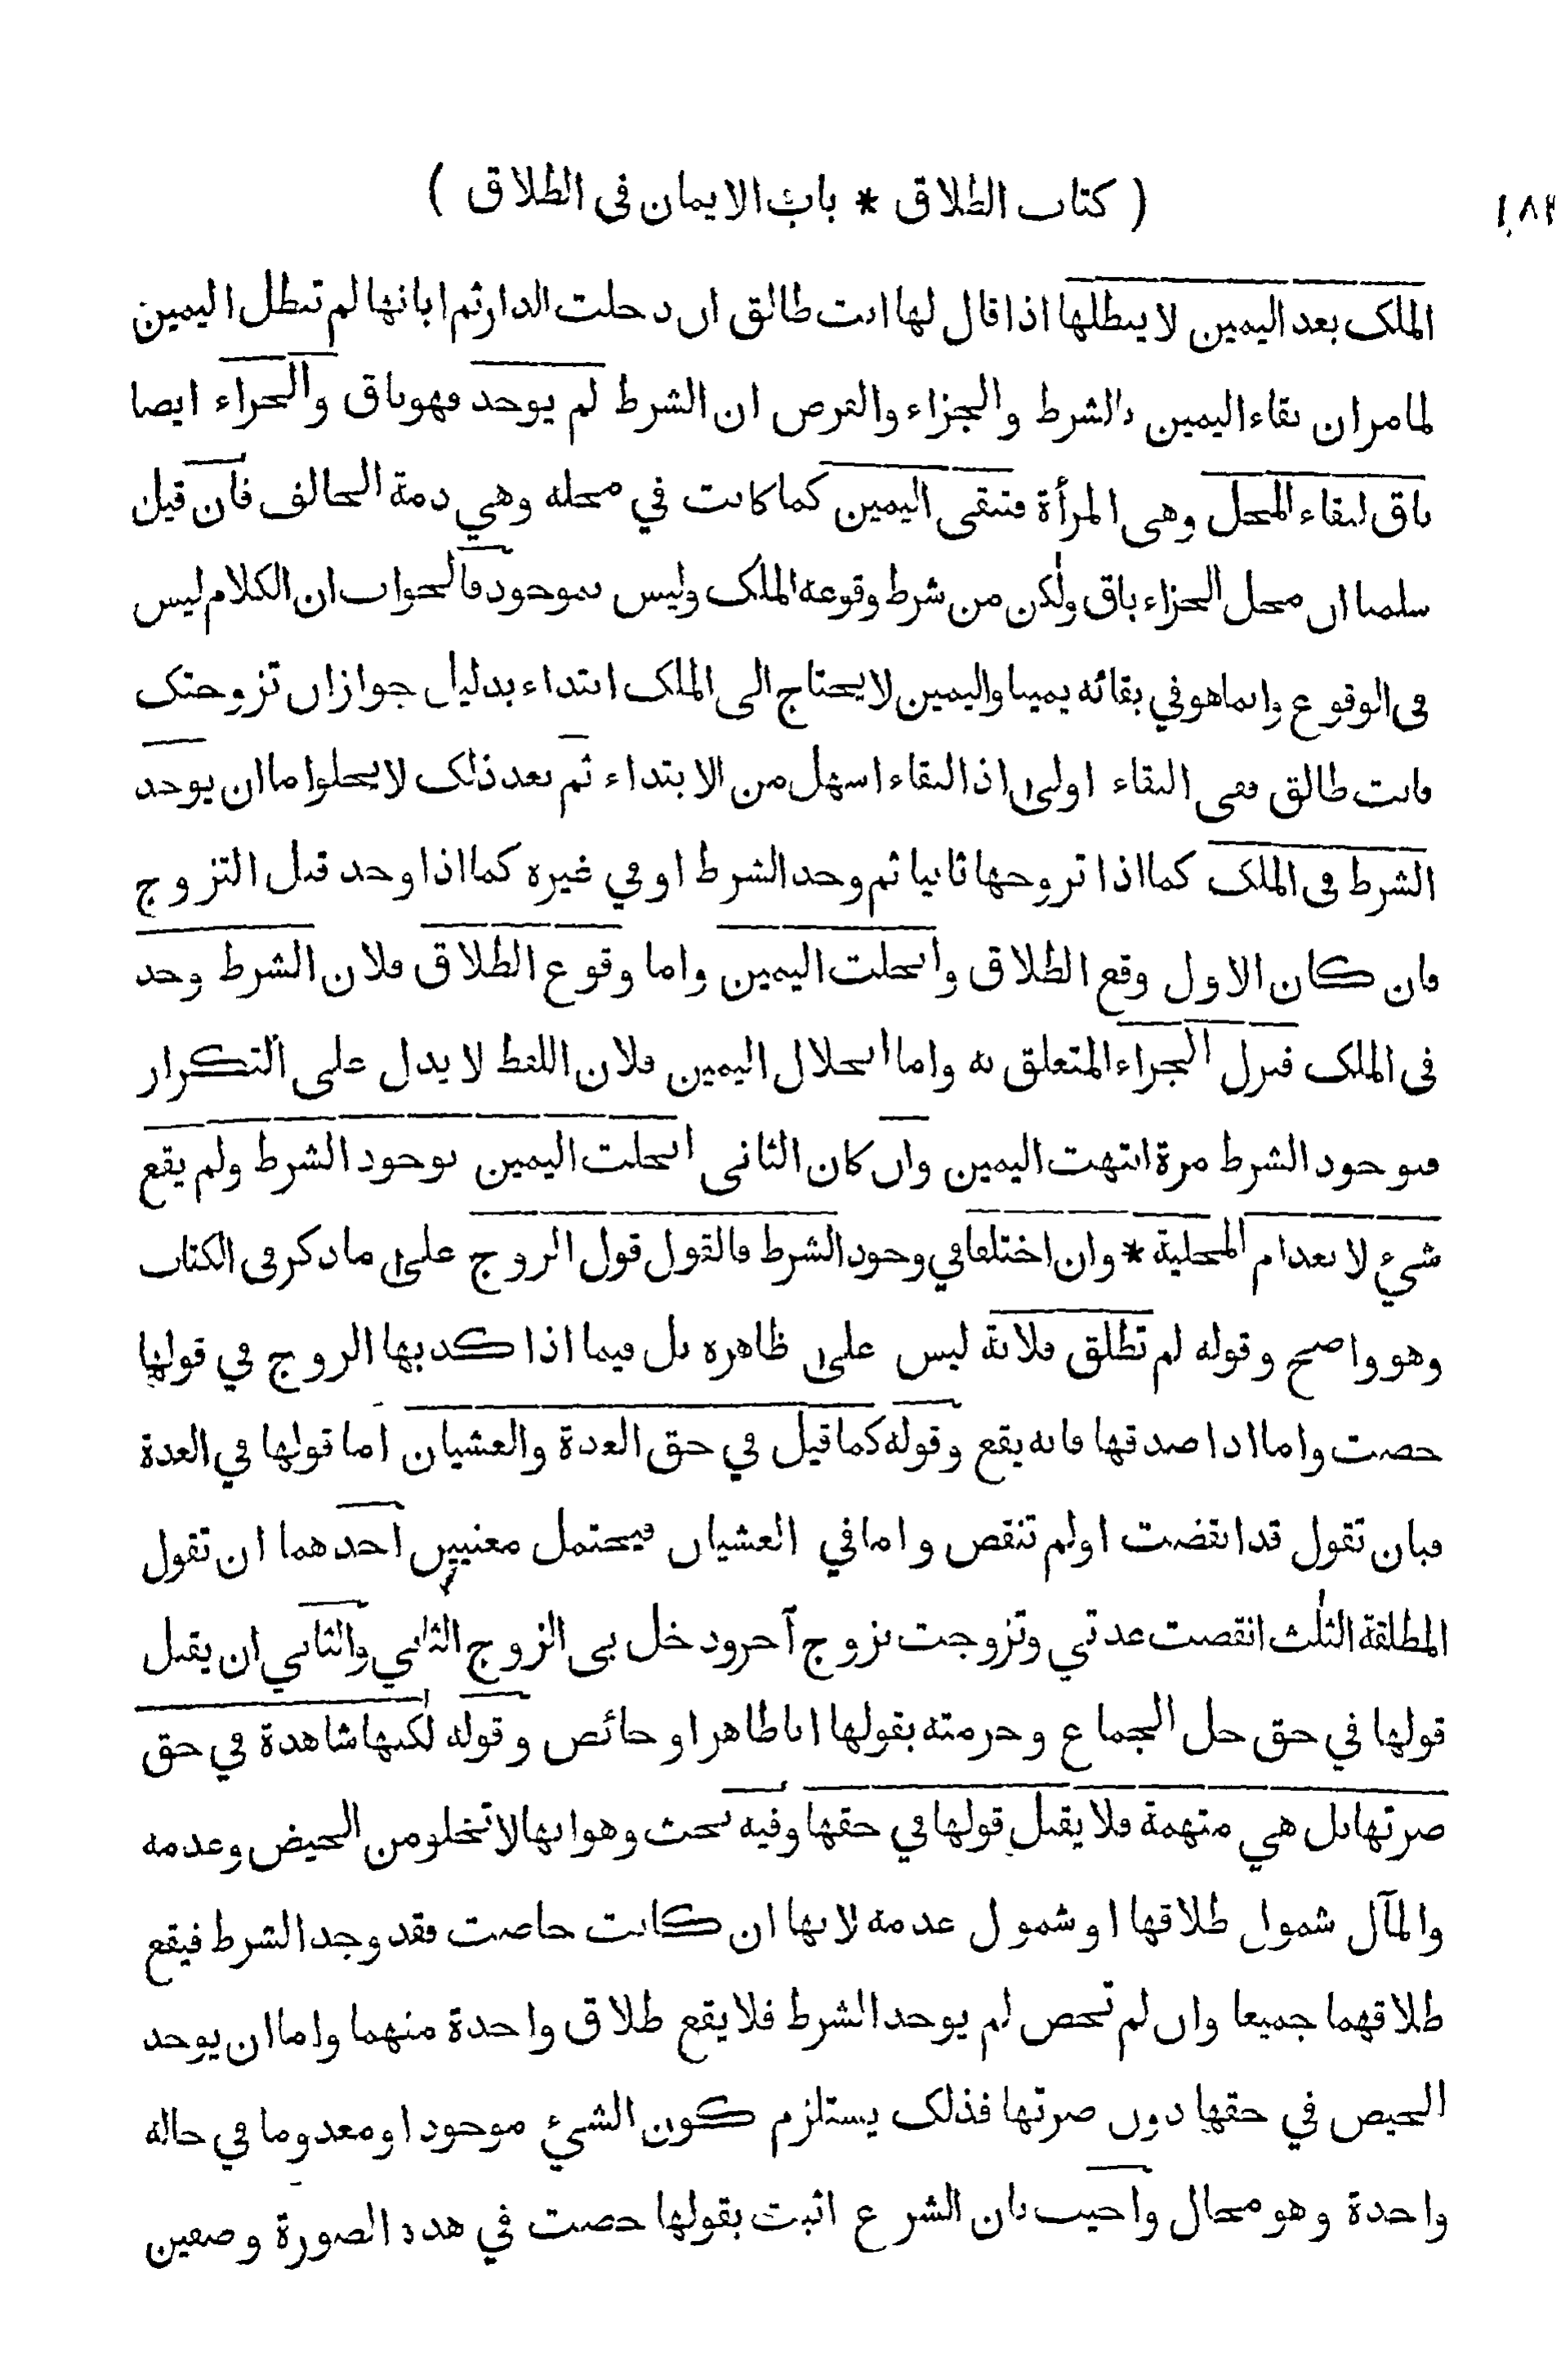 ( كتاب الطلاق * باب الايمان في الطلاق )
الملك بعد اليمين لا يبطلها اذا قال لها انت طالق ان دخلت الدار ثم ابانها لم تبطل اليمين
لما مر ان بقاء اليمين بالشرط والجزاء والفرض ان الشرط لم يوجد فهو باق والجزاء ايضا
باق لبقاء المحل وهى المرأة فتبقى اليمين كما كانت في محله وهي ذمة الحالف فان قيل
سلمنا ان محل الجزاء باق ولكن من شرط وقوعه الملك وليس بموجود فالجواب ان الكلام ليس
في الوقوع وانما هو في بقائه يمينا واليمين لا يحتاج الى الملك ابتداء بدليل جواز ان تزوجتك
فانت طالق ففى البقاء اولى اذ البقاء اسهل من الابتداء ثم بعد ذلك لا يخلوا ما ان يوجد
الشرط فى الملك كما اذا تزوجها ثانيا ثم وجد الشرط او في غيره كما اذا وجد قبل التزوج
فان كان الاول وقع الطلاق وانحلت اليمين واما وقوع الطلاق فلان الشرط وجد
فى الملك فنزل الجزاء المتعلق به واما انحلال اليمين فلان اللفظ لا يدل على التكرار
فبوجود الشرط مرة انتهت اليمين وان كان الثانى انحلت اليمين بوجود الشرط ولم يقع
شيء لانعدام المحلية * وان اختلفا في وجود الشرط فالقول قول الزوج على ما ذكر فى الكتاب
وهو واضح وقوله لم تطلق فلانة ليس على ظاهره بل فيما اذا كذبها الزوج في قولها
حضت واما اذا صدقها فانه يقع وقوله كما قيل في حق العدة والغشيان اما قولها في العدة
فبان تقول قد انقضت او لم تنقض واما في الغشيان فيحتمل معنيين احدهما ان تقول
المطلقة الثلث انقضت عدتي وتزوجت بزوج آخر ودخل بى الزوج الثاني والثاني ان يقبل
قولها في حق حل الجماع وحرمته بقولها انا طاهر او حائض وقوله لكنها شاهدة في حق
ضرتها بل هي متهمة فلا يقبل قولها في حقها وفيه بحث وهو انها لا تخلو من الحيض وعدمه
والمآل شمول طلاقها او شمول عدمه لانها ان كانت حاضت فقد وجد الشرط فيقع
طلاقهما جميعا وان لم تحض لم يوجد الشرط فلا يقع طلاق واحدة منهما واما ان يوجد
الحيض في حقها دون ضرتها فذلك يستلزم كون الشيء موجودا ومعدوما في حالة
واحدة وهو محال واجيب بان الشرع اثبت بقولها حضت في هذه الصورة وصفين